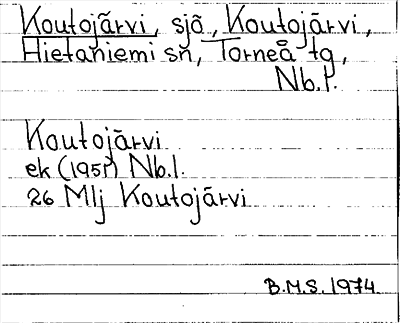 Koutojärvi, sjö, Koutojärvi,
Hietaniemi sn, Torneå tg,
Nb.l.
Koutojärvi
ek (1951) Nb.l.
26 Mlj Koutojärvi
B.M.S. 1974.